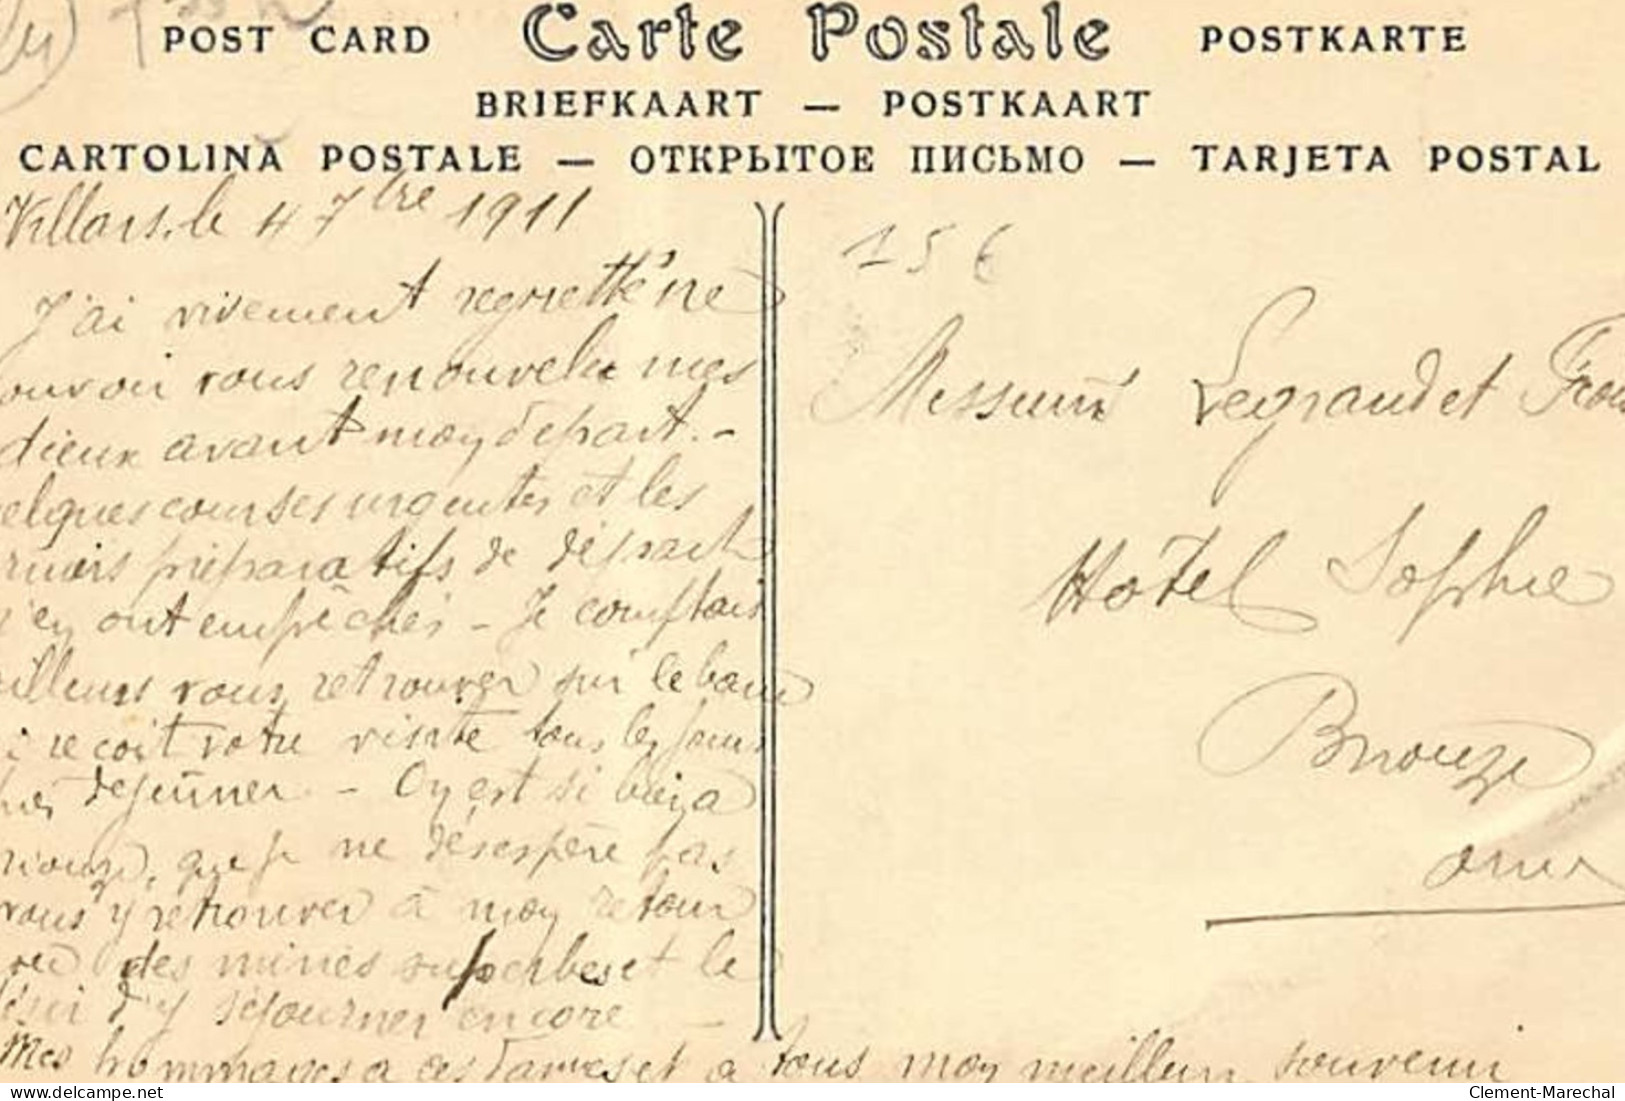 POST CARD Carte Postale POSTKARTE
BRIEFKAART — POSTKAART
CARTOLINA POSTALE — ОТКРЫТОЕ ПИСЬМО — TARJETA POSTAL
Villars, le 4 7bre 1911
J'ai vivement regretté ne
ouvoir vous renouveler mes
dieux avant moy départ. -
elques courses urgentes et les
préparatifs de départ
ey ont empêchés - Je comptais
illeurs vous retrouver sur le banc
i reçoit votre visite tous les jours
dejeûner - Oy est si biey a
riouze, que je ne désespère pas
vous y retrouver à moy retour
des mines superbes et le
ésir d'y séjourner encore -
Mes hommages a ces dames et a tous moy meilleur souvenir
15 €
Messieurs Legrand et
Hotel Sophie
Briouze
orne
Clement-Marechal